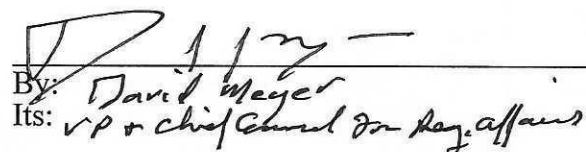 By: David Meyer
Its: VP + Chief Counsel for Reg. Affairs